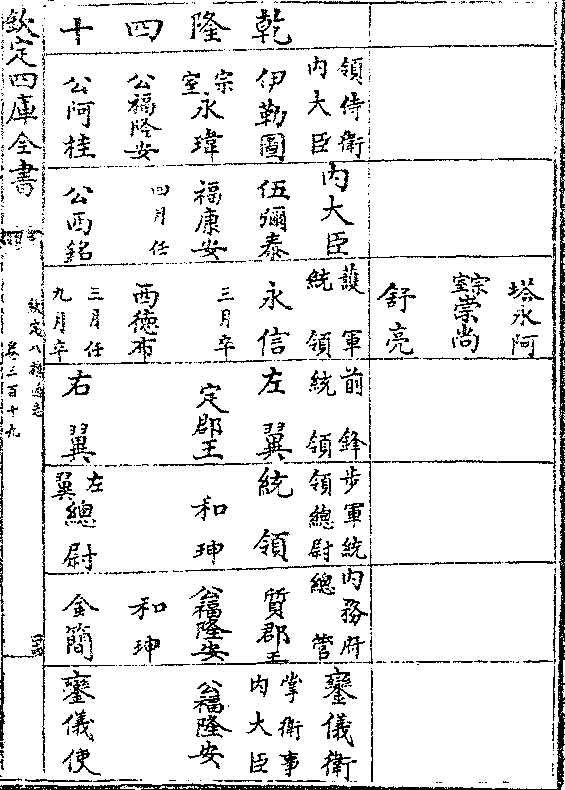 塔永阿
宗室崇尚
舒亮
乾隆四十
領侍衛
內大臣
伊勒圖
宗室永瑋
公福隆安
公阿桂
內大臣
伍彌泰
福康安
四月任
公西銘
護軍
統領
永信
三月卒
西德布
三月任
九月卒
前鋒
統領
左翼
定郡王
右翼
步軍統
領總尉
統領
和珅
左翼總尉
內務府
總管
質郡王
公福隆安
和珅
金簡
鑾儀衛
掌衛事
內大臣
公福隆安
鑾儀使
欽定四庫全書
欽定八旗通志
卷三百十九